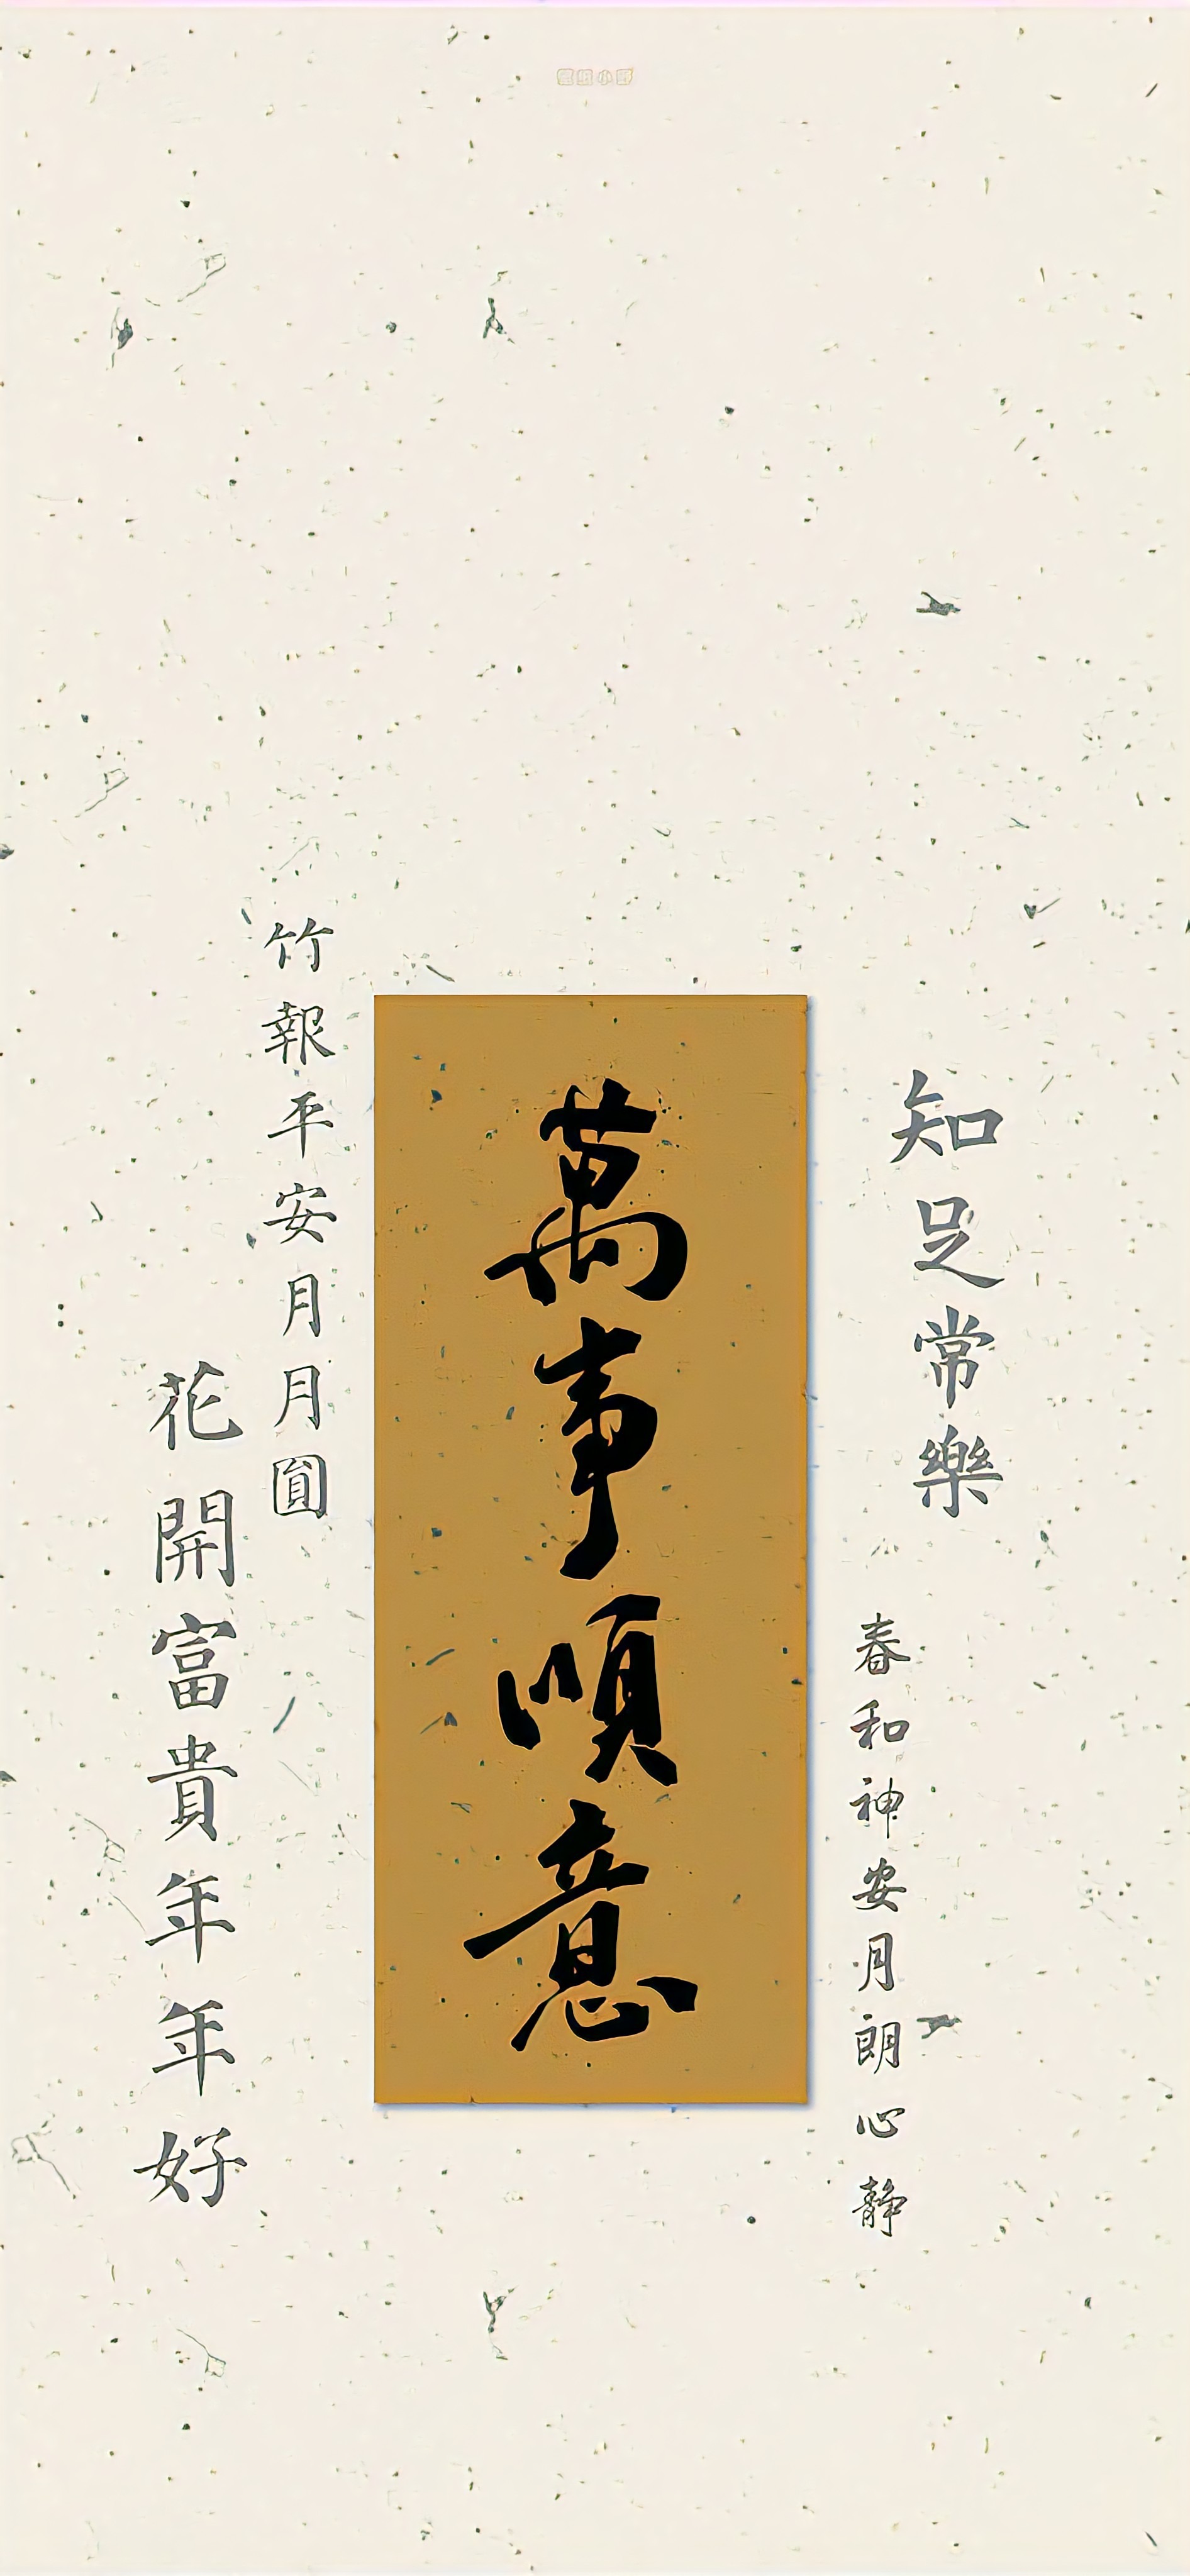 知足常樂
春和神安月朗心静
萬事順意
竹報平安月月圓
花開富貴年年好